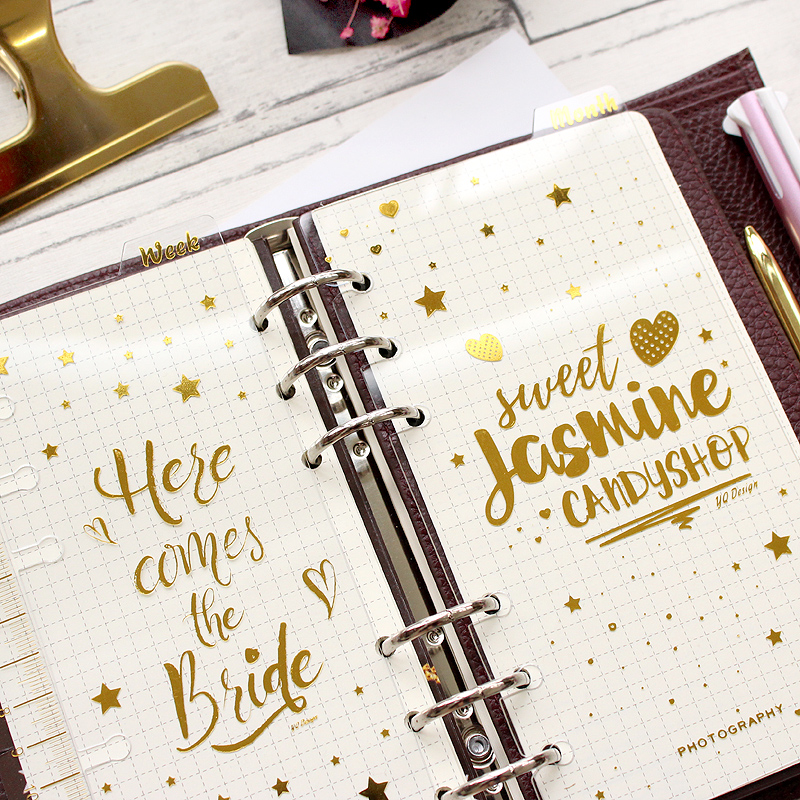 Week
Month
Here
comes
the
Bride
YQ Design
sweet
Jasmine
CANDYSHOP
YQ Design
PHOTOGRAPHY